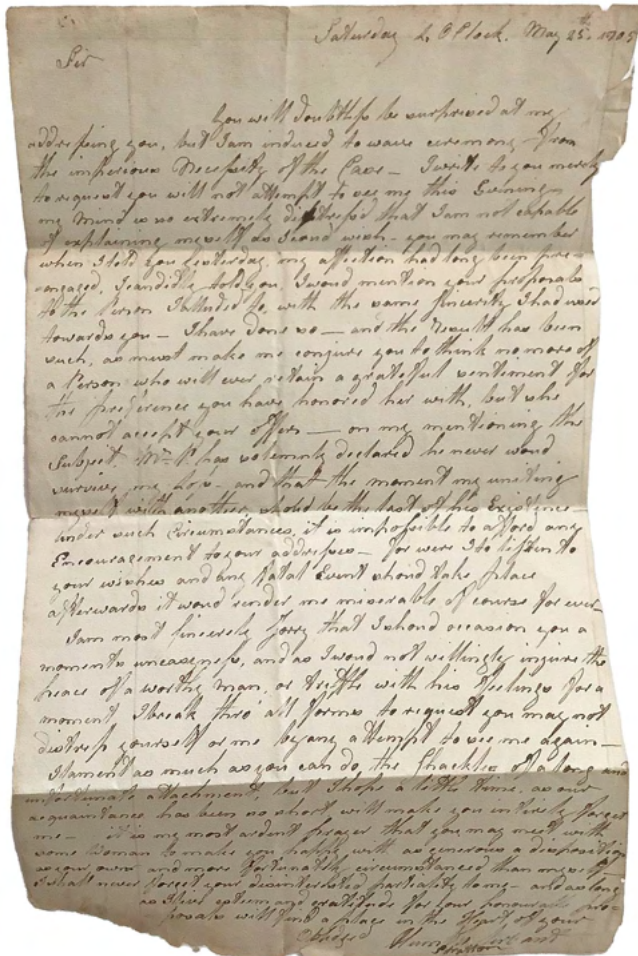 Saturday 2 O'Clock. May 25th. 1805
Sir
You will doubtless be surprised at my
addressing you, but I am induced to wave ceremony from
the imperious Necessity of the Case - I write to you merely
to request you will not attempt to see me this Evening -
my Mind is so extremely distress'd that I am not capable
of explaining myself as I coud wish - you may remember
when I told you yesterday, my affection had long been pre-
-engaged, I candidly told you, I woud mention your proposals
to the Person I alluded to, with the same sincerity I had used
towards you - I have done so - and the Result has been
such, as must make me conjure you to think no more of
a Person who will ever retain a grateful sentiment for
the preference you have honored her with, but she
cannot accept your offers - on my mentioning the
Subject Mr. P. has solemnly declared he never woud
survive my Loss - and that the moment my uniting
myself with another, shoud be the last of his Existence
under such Circumstances, it is impossible to afford any
Encouragement to your addresses - for were I to listen to
your wishes and any fatal Event shoud take place
afterwards it woud render me miserable of course for ever -
I am most sincerely sorry that I shoud occasion you a
moments uneasyness, and as I woud not willingly injure the
peace of a worthy Man, or trifle with his feelings for a
moment I break thro' all forms to request you may not
distress yourself or me by any attempt to see me again -
I lament as much as you can do, the Shackles of a long and
unfortunate attachment, but I hope a little time, as our
acquaintance has been so short will make you intirely forget
me - it is my most ardent prayer that you may meet with
some Woman to make you happy with as generous a disposition
as your own and more fortunately circumstanced than myself
I shall never forget your disinterested partiality to me - and as long
as I live esteem and gratitude for your honourable pro-
-posals will find a place in the Heart of your
Obliged Hum and